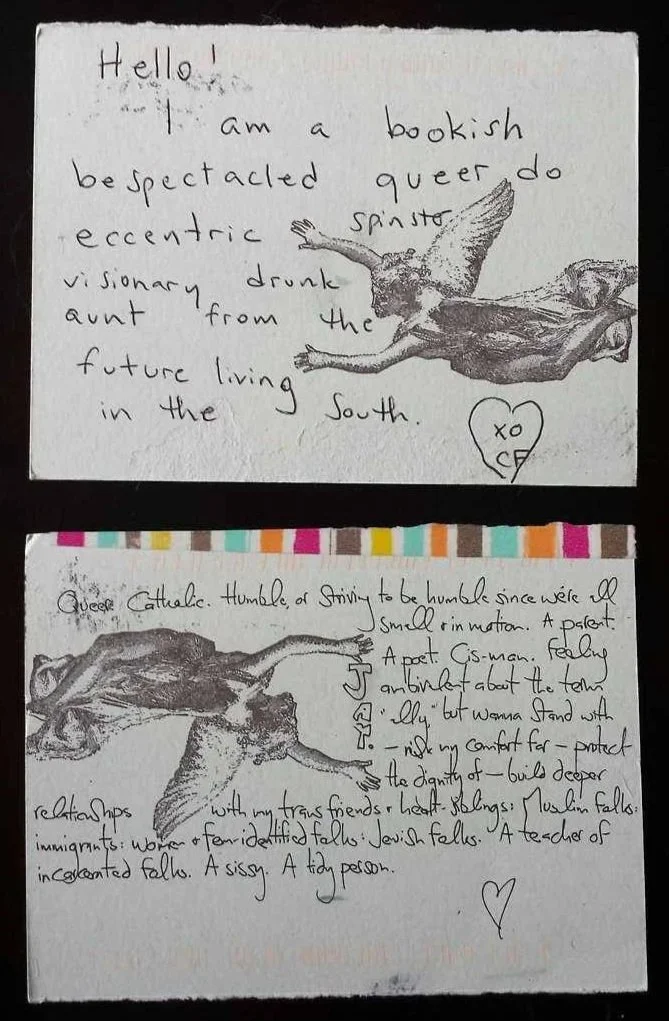 Hello!
I am a
bookish
bespectacled queer do
eccentric spinster
visionary drunk
aunt from the
future living
in the South.
XO
CF
Queer Catholic. Humble, or striving to be humble since we're all
small & in motion. A parent.
A poet. Cis-man. Feeling
ambivalent about the term
"ally" but wanna stand with
– risk my comfort for – protect
the dignity of – build deeper
relationships with my trans friends & heart-siblings: Muslim folks:
immigrants: women & fem-identified folks: Jewish folks. A teacher of
incarcerated folks. A sissy. A tidy person.